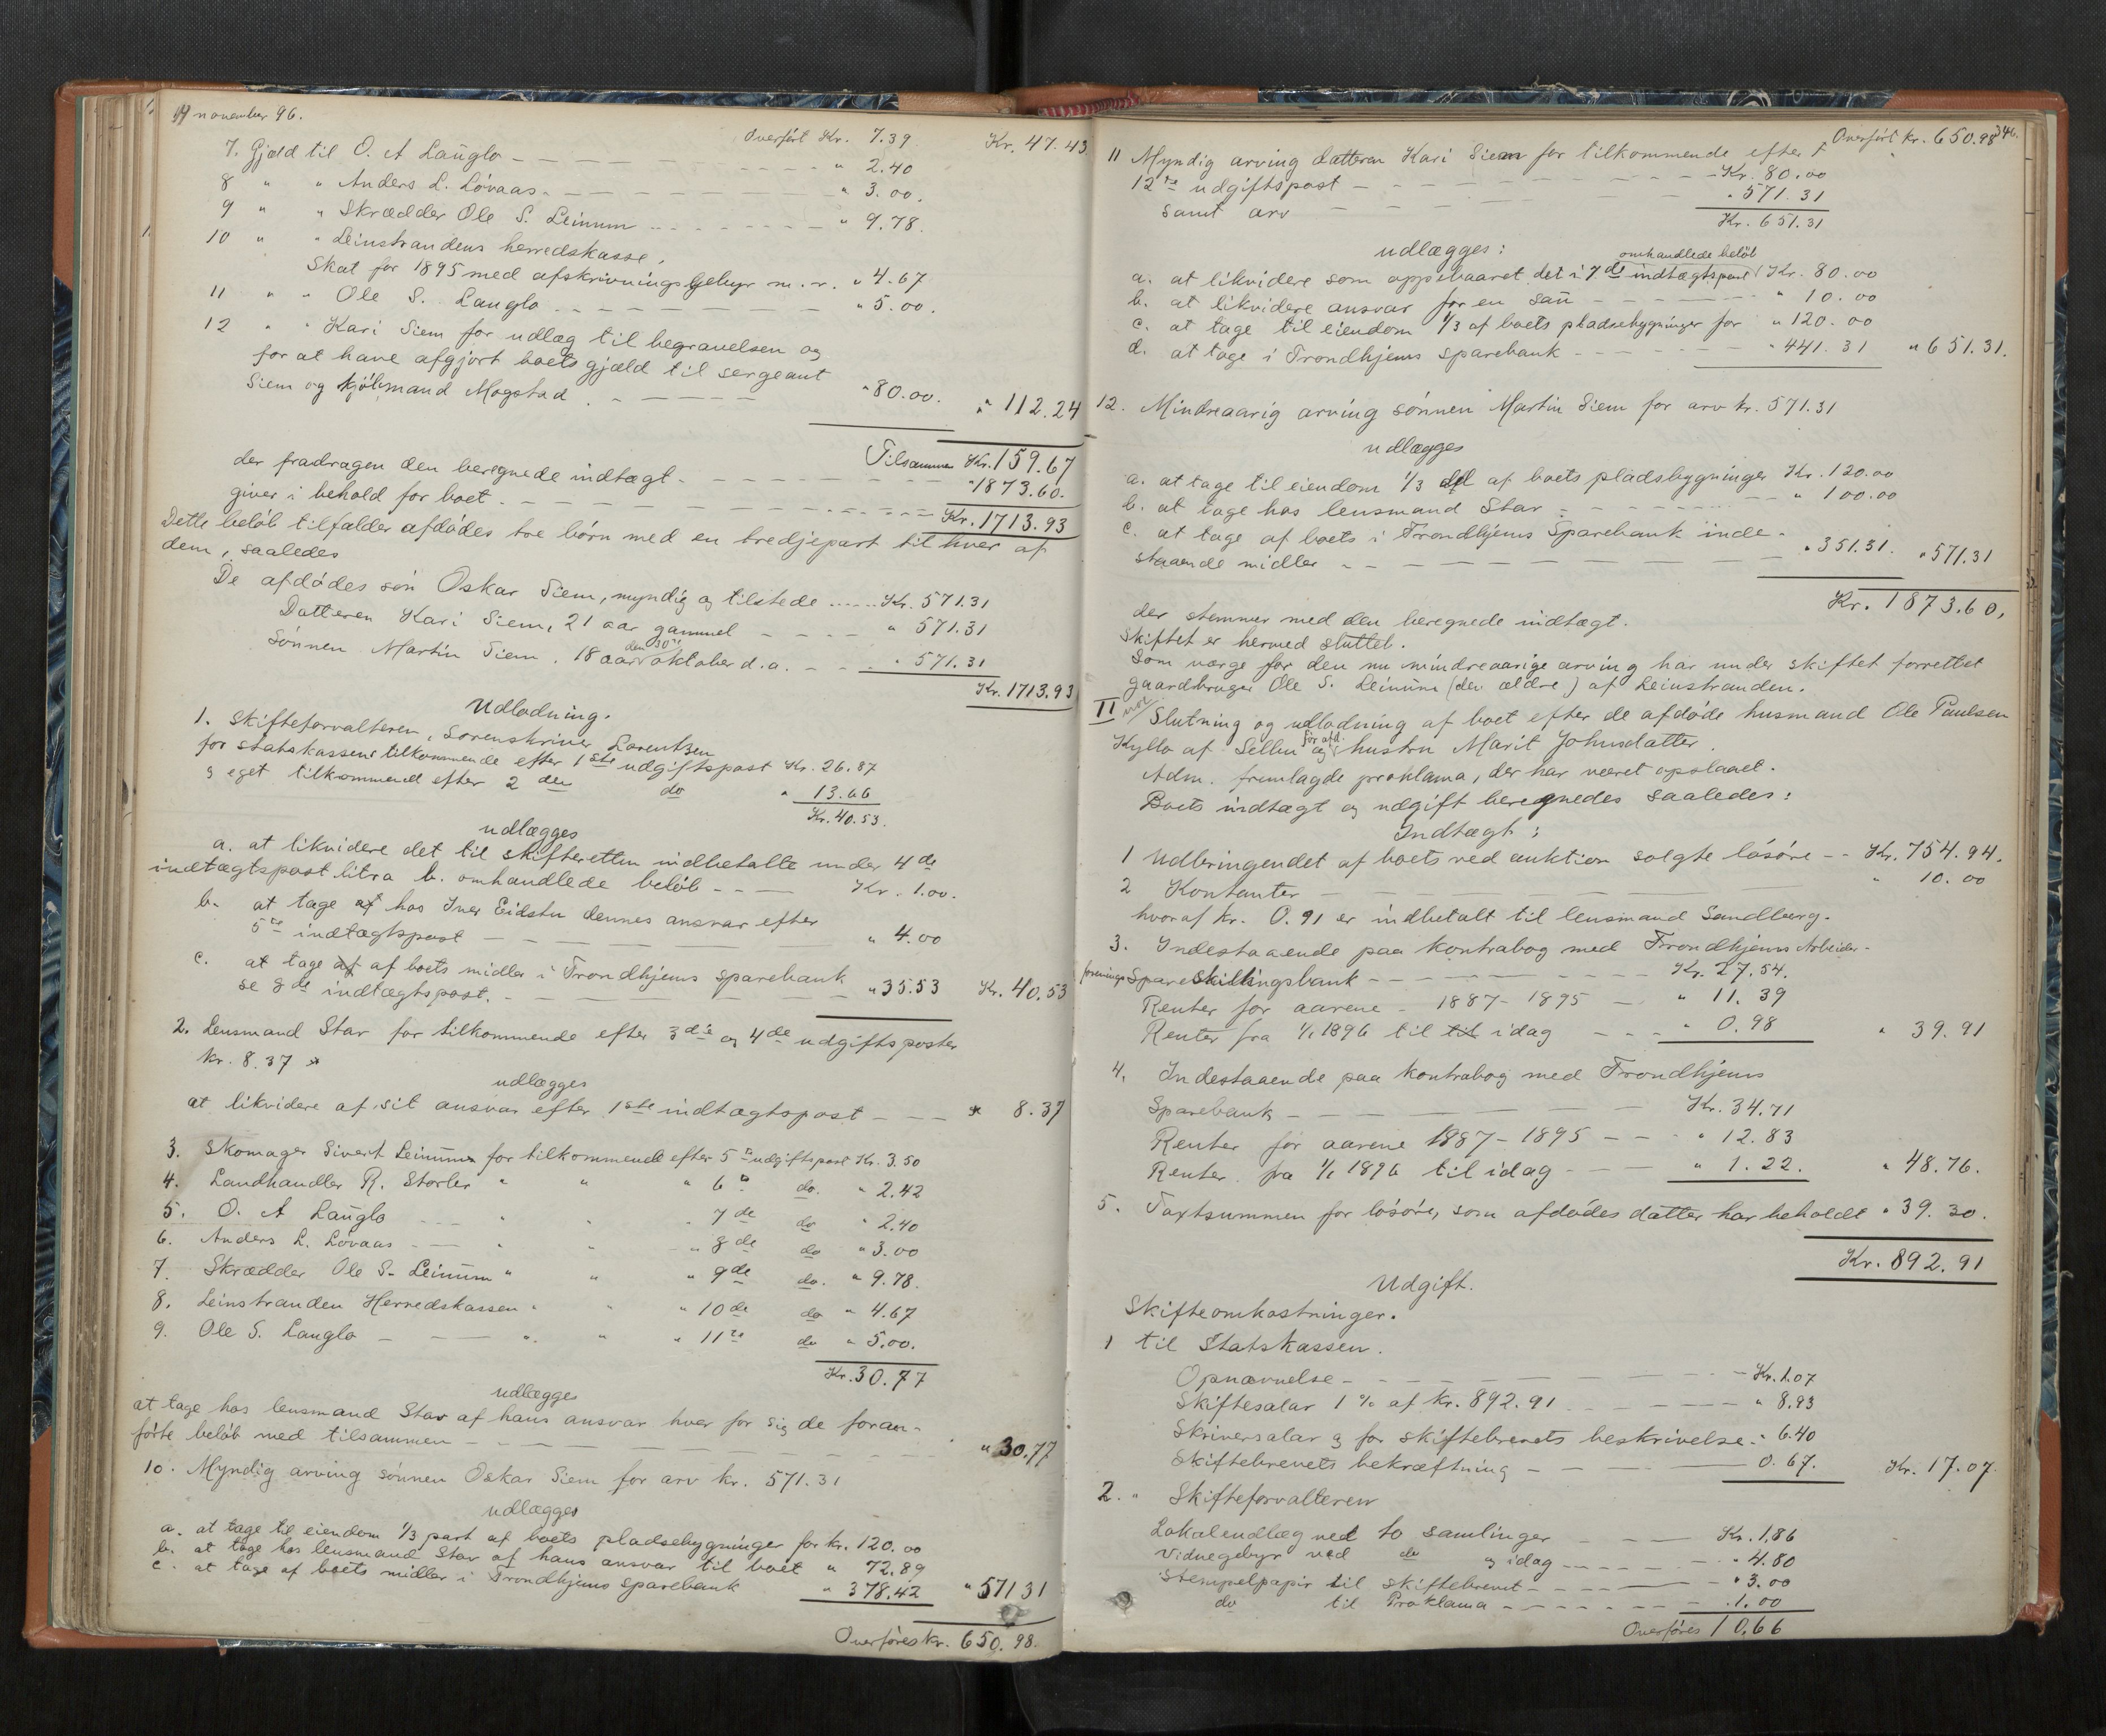 19 november 96.
Overført Kr. 7.39 Kr. 47.43
7. Gjæld til O. A Langlo - - - - " 2.40
8 " " Anders L. Løvaas - - - " 3.00.
9 " " Skrædder Ole S. Leinum - - - " 9.78.
10 " " Leinstrandens herredskasse,
Skat for 1895 med afskrivningsgebyr m. v. " 4.67
11 " " Ole S. Langlo - - - - " 5.00.
12 " " Kari Siem for udlæg til begravelsen og
for at have afgjort boets gjæld til sergeant
Siem og kjøbmand Mogstad. - - - - " 80.00. " 112.24
Tilsammen Kr. 159.67
der fradragen den beregnede indtægt - - - " 1873.60.
giver i behold for boet - - - - Kr. 1713.93
Dette beløb tilfalder afdødes tre børn med en tredjepart til hver af
dem, saaledes
De afdødes søn Oskar Siem, myndig og tilstede ..... Kr. 571.31
Datteren Kari Siem, 21 aar gammel - - - - " 571.31
Sønnen Martin Siem, 18 aar den 30te oktober d. a. - - - " 571.31
Kr. 1713.93
Udlodning.
1. Skifteforvalteren, Sorenskriver Lorentzen
for statskassens tilkommende efter 1ste udgiftspost Kr. 26.87
og eget tilkommend efter 2den do " 13.66
Kr. 40.53.
udlægges
a. at likvidere det til skifteretten indbetalte under 4de
indtægtspost litra b. omhandlede beløb - - - Kr. 1.00.
b. at tage af hos Iver Eidstu dennes ansvar efter
5te indtægtspost - - - - " 4.00
c. at tage af af boets midler i Trondhjems sparebank
se 8de indtægtspost. - - - - " 35.53 Kr. 40.53
2. Lensmand Stav for tilkommende efter 3die og 4de udgiftsposter
Kr. 8.37
udlægges
at likvidere af sit ansvar efter 1ste indtægtspost - - - " 8.37
3. Skomager Sivert Leinum for tilkommende efter 5te udgiftspost Kr. 3.50
4. Landhandler R. Storler " " " 6te do. " 2.42
5. O. A Langlo - - - " " " 7de do " 2.40
6. Anders L. Løvaas - - " " " 8de do " 3.00
7. Skrædder Ole S. Leinum " " " 9de do. " 9.78.
8. Leinstranden Herredskassen " " " 10de do " 4.67
9. Ole S. Langlo - - - " " " 11te do " 5.00.
Kr. 30.77
udlægges
at tage hos lensmand Stav af hans ansvar hver for sig de foran-
førte beløb med tilsammen - - - - " 30.77
10. Myndig arving sønnen Oskar Siem for arv kr. 571.31
udlægges
a. at tage til eiendom 1/3 part af boets pladsebygninger for kr. 120.00
b. at tage hos lensmand Stav af hans ansvar til boet " 72.89
c. at tage af boets midler i Trondhjems sparebank " 378.42 " 571 31
Overføres kr. 650.98.
346.
Overført kr. 650.98
11 Myndig arving datteren Kari Siem for tilkommende efter
12te udgiftspost - - - - Kr. 80.00
samt arv - - - - " 571.31
Kr. 651.31
udlægges:
a. at likvidere som oppebaaret det i 7de indtægtspost omhandlede beløb Kr. 80.00
b. at likvidere ansvar for en sau - - - " 10.00
c. at tage til eiendom 1/3 af boets pladsebygninger for " 120.00
d. at tage i Trondhjems sparebank - - - " 441.31 " 651.31.
12. Mindreaarig arving sønnen Martin Siem for arv kr. 571.31
udlægges
a. at tage til eiendom 1/3 del af boets pladsbygninger Kr. 120.00
b. at tage hos lensmand Stav - - - " 100.00
c. at tage af boets i Trondhjems Sparebank inde-
staaende midler - - - - " 351.31. " 571.31
Kr. 1873.60,
der stemmer med den beregnede indtægt.
Skiftet er hermed sluttet.
Som værge for den nu mindreaarige arving har under skiftet forrettet
gaardbruger Ole S. Leinum (den ældre) af Leinstranden.
II Slutning og udlodning af boet efter de afdøde husmand Ole Paulsen
Kyllo af Sellin og før afd. hustru Marit Johnsdatter.
Adm. fremlagde proklama, der har været opslaaet.
Boets indtægt og udgift beregnedes saaledes:
Indtægt:
1 Udbringendet af boets ved auktion solgte løsøre - - Kr. 754.94.
2 Kontanter - - - - " 10.00
hvoraf kr. 0.91 er indbetalt til lensmand Sandberg.
3. Indestaaende paa kontrabog med Trondhjems Arbeider-
forenings Spareskillingsbank - - - - Kr. 27.54.
Renter for aarene - 1887 - 1895 - " 11.39
Renter fra 1/1 1896 til til idag - - - " 0.98 " 39.91
4. Indestaaende paa kontrabog med Trondhjems
Sparebank - - - - Kr. 34.71
Renter for aarene 1887 - 1895 - - - " 12.83
Renter fra 1/1 1896 til idag - - - " 1.22. " 48.76.
5. Taxtsummen for løsøre, som afdødes datter har beholdt " 39.30.
Kr. 892.91
Udgift.
Skifteomkostninger.
1 til Statskassen.
Opnævnelse - - - - Kr. 1.07
Skiftesalar 1 % af kr. 892.91 - - - - " 8.93
Skriversalar og for skiftebrevets beskrivelse - " 6.40
Skiftebrevets bekræftning - - - 0.67. Kr. 17.07.
2. " Skifteforvalteren
Lokaleudlæg ved to samlinger - - - Kr. 1,86
Vidnegebyr ved do og idag - - - " 4.80
Stempelpapir til skiftebrevet - - - " 3.00
do til Proklama - - - - 1.00
Overføres 10.66